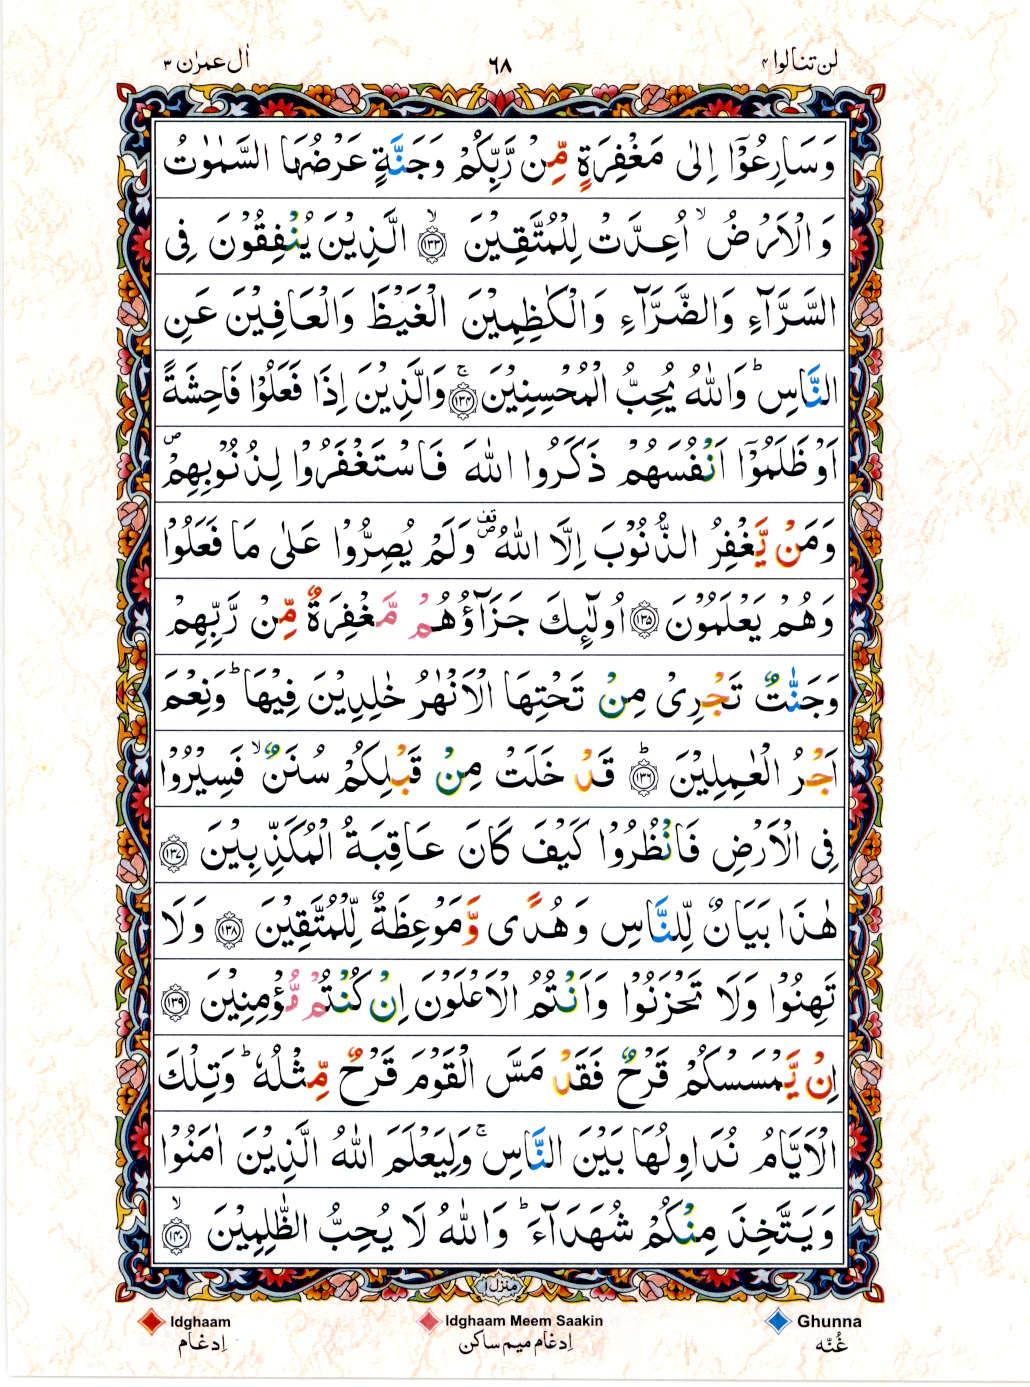 لن تنالوا ۴
٦٨
اٰل عمرٰن ۳
وَ سَارِعُوْۤا اِلٰى مَغْفِرَةٍ مِّنْ رَّبِّكُمْ وَ جَنَّةٍ عَرْضُهَا السَّمٰوٰتُ
وَ الْاَرْضُ ۙ اُعِدَّتْ لِلْمُتَّقِيْنَ ۙ﴿۱۳۳﴾ الَّذِيْنَ يُنْفِقُوْنَ فِى
السَّرَّآءِ وَالضَّرَّآءِ وَالْكٰظِمِيْنَ الْغَيْظَ وَالْعَافِيْنَ عَنِ
النَّاسِ ؕ وَاللّٰهُ يُحِبُّ الْمُحْسِنِيْنَ ۚ﴿۱۳۴﴾ وَالَّذِيْنَ اِذَا فَعَلُوْا فَاحِشَةً
اَوْ ظَلَمُوْۤا اَنْفُسَهُمْ ذَكَرُوا اللّٰهَ فَاسْتَغْفَرُوْا لِذُنُوْبِهِمْ ص
وَ مَنْ يَّغْفِرُ الذُّنُوْبَ اِلَّا اللّٰهُ قف ص وَلَمْ يُصِرُّوْا عَلٰى مَا فَعَلُوْا
وَ هُمْ يَعْلَمُوْنَ ﴿۱۳۵﴾ اُولٰٓئِكَ جَزَآؤُهُمْ مَّغْفِرَةٌ مِّنْ رَّبِّهِمْ
وَجَنّٰتٌ تَجْرِىْ مِنْ تَحْتِهَا الْاَنْهٰرُ خٰلِدِيْنَ فِيْهَا ؕ وَنِعْمَ
اَجْرُ الْعٰمِلِيْنَ ؕ﴿۱۳۶﴾ قَدْ خَلَتْ مِنْ قَبْلِكُمْ سُنَنٌ ۙ فَسِيْرُوْا
فِى الْاَرْضِ فَانْظُرُوْا كَيْفَ كَانَ عَاقِبَةُ الْمُكَذِّبِيْنَ ﴿۱۳۷﴾
هٰذَا بَيَانٌ لِّلنَّاسِ وَ هُدًى وَّ مَوْعِظَةٌ لِّلْمُتَّقِيْنَ ﴿۱۳۸﴾ وَ لَا
تَهِنُوْا وَ لَا تَحْزَنُوْا وَ اَنْتُمُ الْاَعْلَوْنَ اِنْ كُنْتُمْ مُّؤْمِنِيْنَ ﴿۱۳۹﴾
اِنْ يَّمْسَسْكُمْ قَرْحٌ فَقَدْ مَسَّ الْقَوْمَ قَرْحٌ مِّثْلُهٗ ؕ وَتِلْكَ
الْاَيَّامُ نُدَاوِلُهَا بَيْنَ النَّاسِ ۚ وَلِيَعْلَمَ اللّٰهُ الَّذِيْنَ اٰمَنُوْا
وَ يَتَّخِذَ مِنْكُمْ شُهَدَآءَ ؕ وَ اللّٰهُ لَا يُحِبُّ الظّٰلِمِيْنَ ۙ﴿۱۴۰﴾
منزل ۱
Idghaam Idghaam Meem Saakin Ghunna
اِدغام اِدغام میم ساکن غُنّه